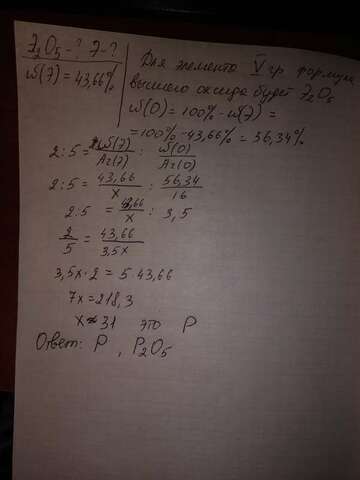 Э₂O₅-? Э-?
ω(Э)=43,66%
Для элемента V гр формула
высшего оксида будет Э₂O₅
ω(O)=100%-ω(Э)=
=100%-43,66%=56,34%
2:5=ω(Э)/Ar(Э) : ω(O)/Ar(O)
2:5=43,66/x : 56,34/16
2:5=43,66/x : 3,5
2/5=43,66/3,5x
3,5x·2=5·43,66
7x=218,3
x≈31 это P
Ответ: P, P₂O₅